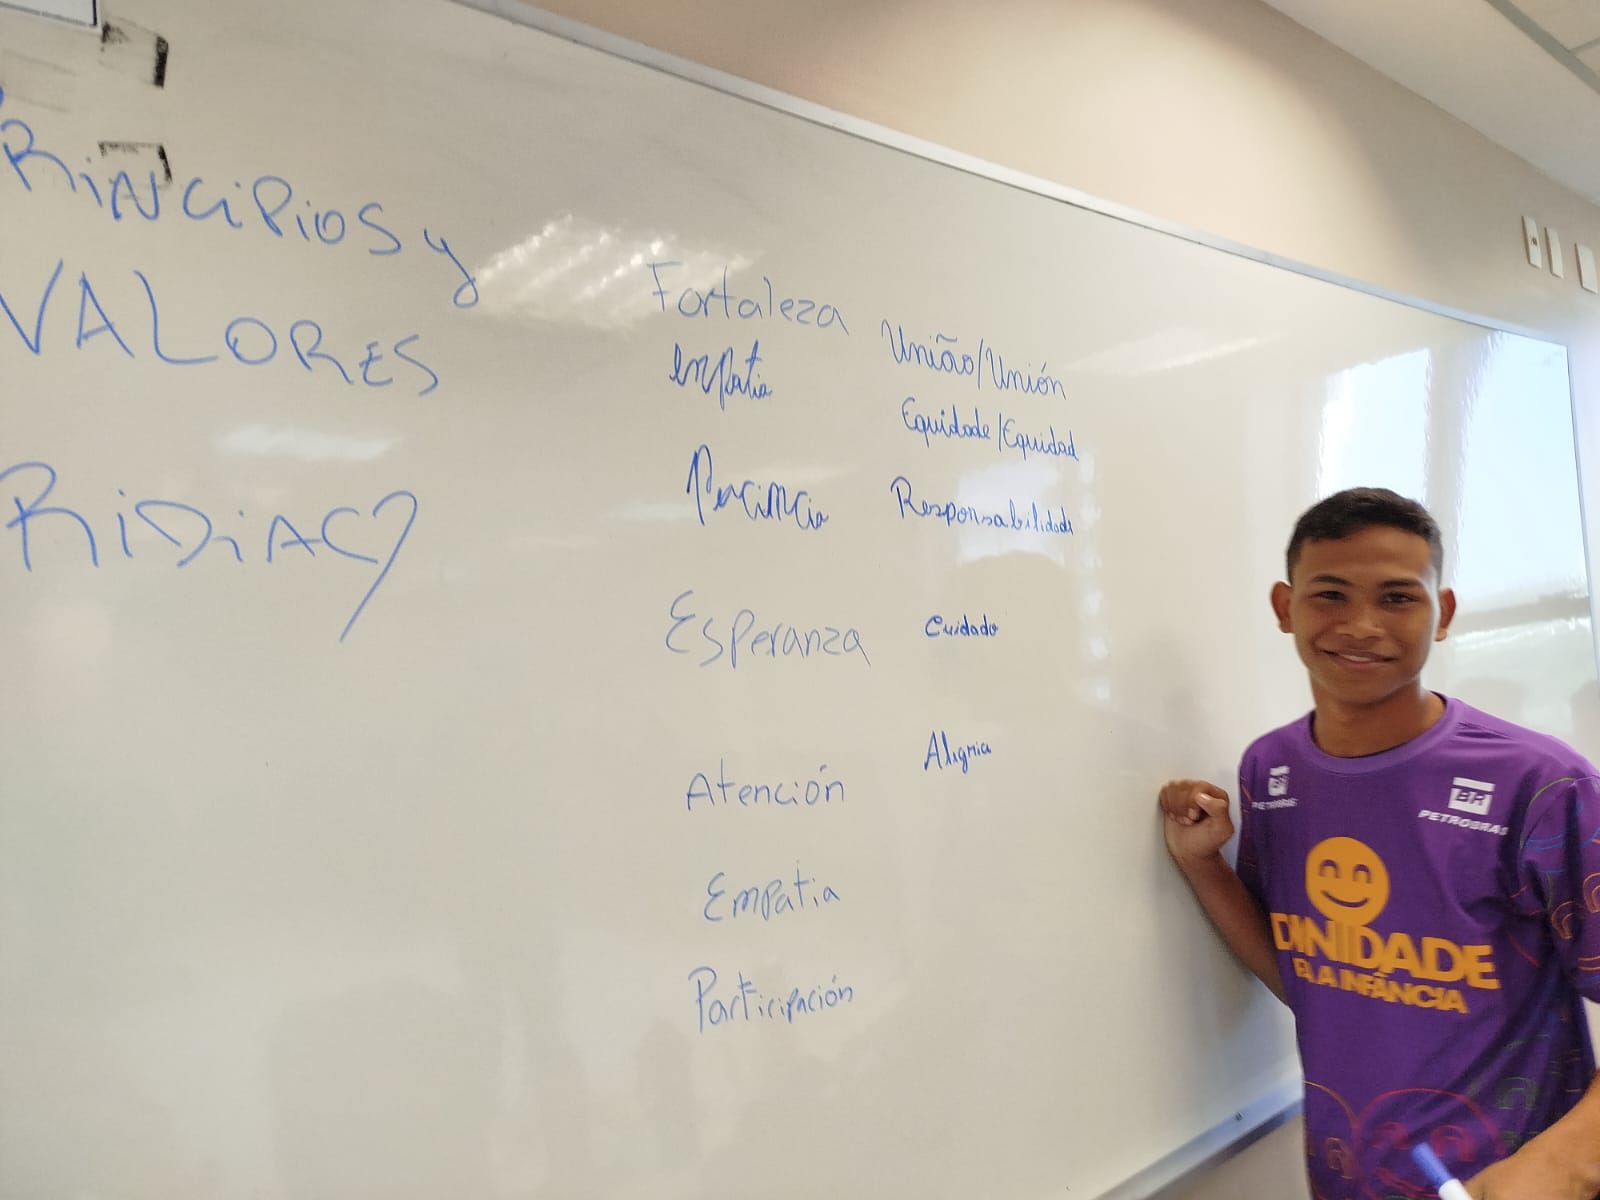 PRINCIPIOS y
VALORES
RIDIAC
Fortaleza
Empatia
Esperanza
Atención
Empatia
Participación
União/Unión
Equidade/Equidad
Responsabilidade
Cuidado
Alegria
BR
PETROBRAS
BR
PETROBRAS
DIGNIDADE
PELA INFÂNCIA